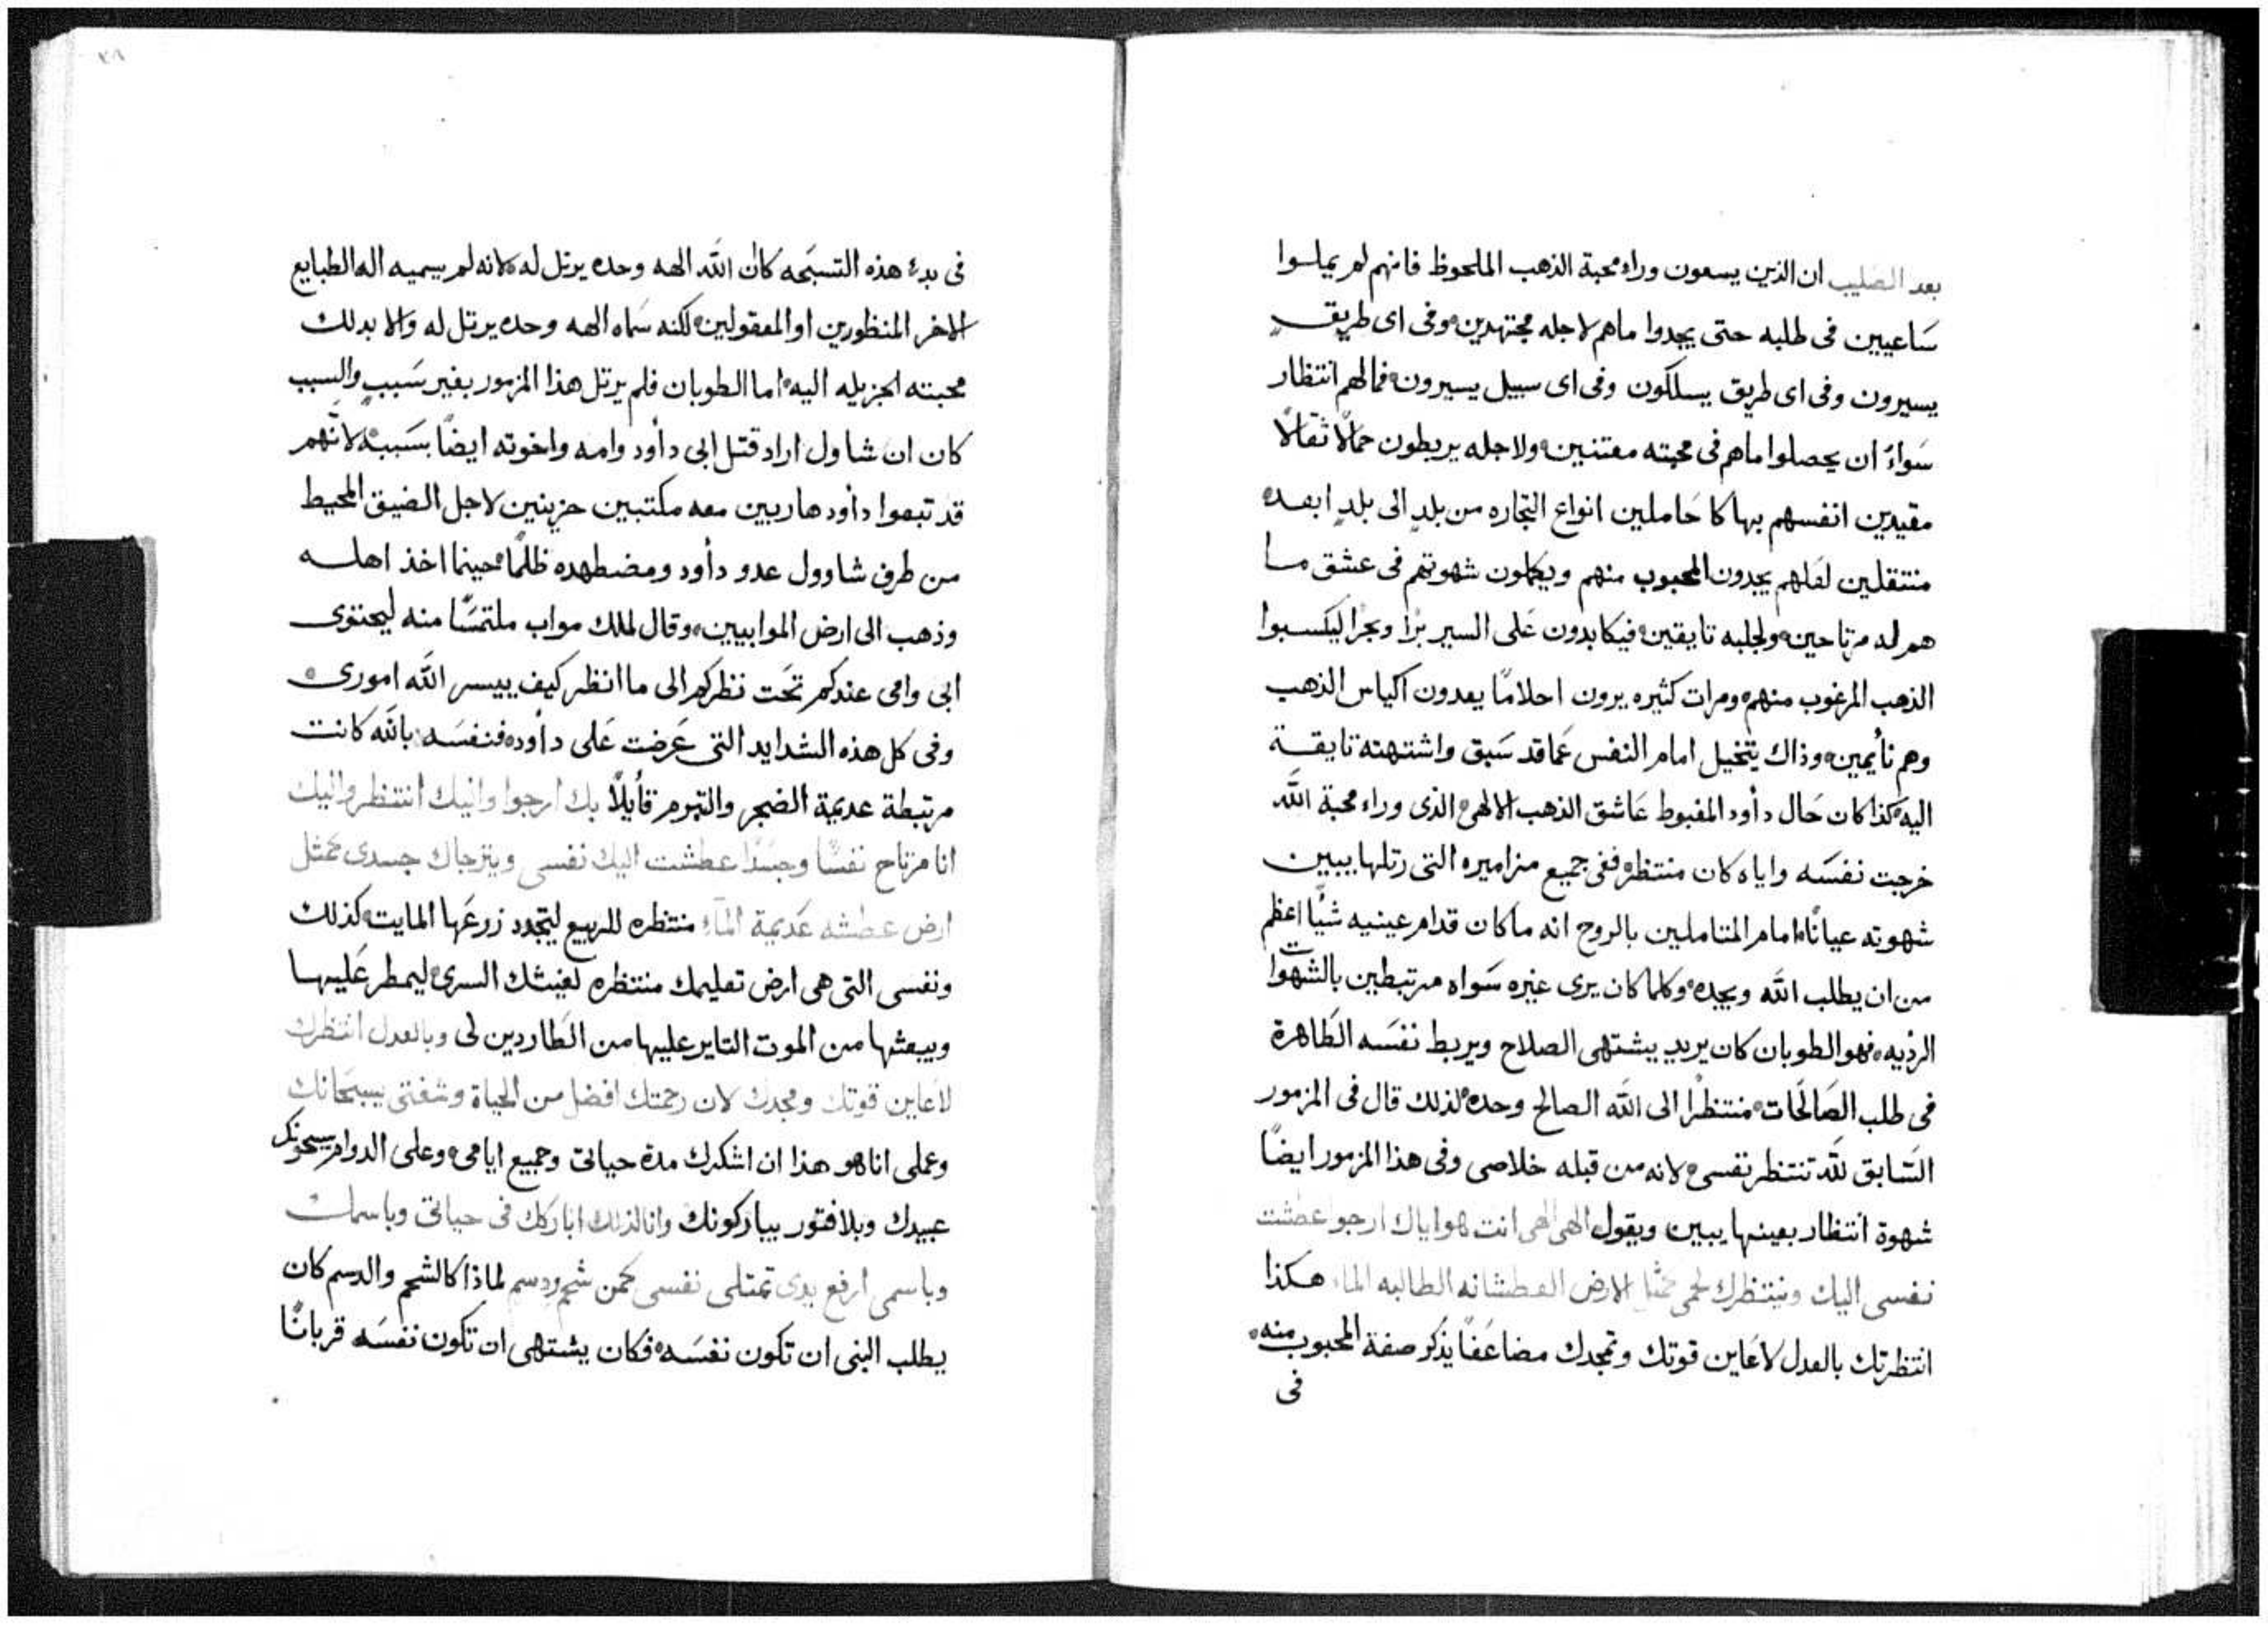 بعد الصليب ان الذين يسعون وراء محبة الذهب الملحوظ فانهم لم يملوا
ساعيين فى طلبه حتى يجدوا ماهم لاجله مجتهدين وفى اى طريق
يسيرون وفى اى طريق يسلكون وفى اى سبيل يسيرون فمالهم انتظار
سَواءَ ان يحصلوا ماهم فى محبته مفتنين ولاجله يربطون حمالًا ثقالًا
مقيدين انفسهم بها كا حَاملين انواع التجاره من بلدٍ الى بلدٍ ابعده
منتقلين لعَلهم يجدون المحبوب منهم ويكملون شهوتهم فى عشق مـا
هم له مرتاحين ولجلبه تايقين فيكابدون عَلى السير برًا وبحرًا ليكسبوا
الذهب المرغوب منهم ومرات كثيره يرون احلامًا يعدون اكياس الذهب
وهم نأيمين وذاك يتخيل امام النفس عَماقد سَبق واشتهته تايقـة
اليه كذا كان حَال دأود المغبوط عَاشق الذهب الالهى الذى وراء محبة اللَّه
خرجت نفسَه واياه كان منتظره ففى جميع مزاميره التى رتلها يبيين
شهوته عيانًا امام المتاملين بالروح انه ماكان قدام عينيه شيًا اعظم
من ان يطلب اللَّه ويجده وكلما كان يرى غيره سَواه مرتبطين بالشهوات
الرديه فهو الطوبان كان يريد يشتهى الصلاح ويربط نفسَه الطَاهرة
فى طلب الصَالحَات منتظرًا الى اللَّه الصالح وحده لذلك قال فى المزمور
السَّابق للَّه تنتظر نفسى لانه من قبله خلاصى وفى هذا المزمور ايضًا
شهوة انتظار بعينها يبين ويقول الهى الهى انت هو اياك ارجوا عطشت
نفسى اليك وينتظرك لحمى كمثل الارض العطشانه الطالبه الماء هـكذا
انتظرتك بالعدل لاعَاين قوتك وتمجدك مضاعَفًا يذكر صفة المحبوب منه
فى
فى بدء هذه التسبَحه كان اللَّه الهه وحده يرتل له لانه لم يسميه اله الطبايع
الاخر المنظورين او المعقولين لكنه سَماه الهه وحده يرتل له والا بدلك
محبته الجزيله اليه اما الطوبان فلم يرتل هذا المزمور بغير سَببٍ والسبب
كان ان شاول اراد قتل ابى دأود وامه واخوته ايضًا بسَببه لانَّهم
قد تبعوا دأود هاربين معه مكتبين حزينين لاجل الضيق المحيط
من طرف شاوول عدو دأود ومضطهده ظلمًا حينما اخذ اهلـه
وذهب الى ارض الموابيين وقال لملك مواب ملتمسًا منه ليحتوى
ابى وامى عندكم تحَت نظركم الى ما انظر كيف ييسر اللَّه امورى
وفى كل هذه الشدايد التى عَرضت عَلى دأود فنفسَه باللَّه كانت
مرتبطة عديمة الضجر والتبرم قأيلًا بك ارجوا واليك انتظر واليك
انا مرتاح نفسًا وجسَدًا عطشت اليك نفسى ويترجاك جسدى كمثل
ارض عطشه عَديمة المآء منتظره للربيع ليتجدد زرعَها المايت كذلك
ونفسى التى هى ارض تعليمك منتظره لغيثك السرى ليمطر عَليهـا
ويبعثها من الموت الثاير عليها من الطَاردين لى وبالعدل انتظرك
لاعَاين قوتك ومجدك لان رحمتك افضل من الحياة وشفتى يسبحَانك
وعملى انا هو هذا ان اشكرك مدة حياتى وجميع ايامى وعلى الدوام يسبحونك
عبيدك وبلا فتور يباركونك وانا لذلك اباركك فى حياتى وباسمك
وباسمى ارفع يدى تمتلى نفسى كمن شحم ودسم لماذا كالشحم والدسم كان
يطلب النبى ان تكون نفسَه فكان يشتهى ان تكون نفسَه قربانًا